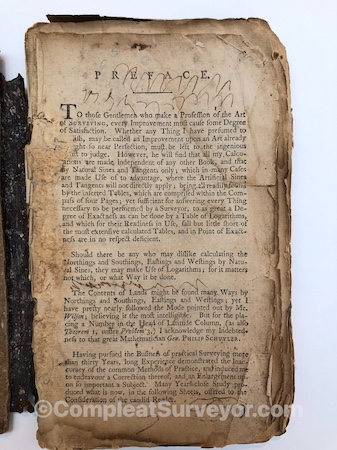 PREFACE.
TO those Gentlemen who make a Profession of the Art
of SURVEYING, every Improvement must cause some Degree
of Satisfaction. Whether any Thing I have presumed to
may be called an Improvement upon an Art already
ght so near Perfection, must be left to the ingenious
to judge. However, he will find that all my Calcu-
ations are made independent of any other Book, and that
by Natural Sines and Tangents only; which in many Cases
are made Use of to advantage, where the Artificial Sines
and Tangents will not directly apply; being all readily found
by the inserted Tables, which are comprised within the Com-
pass of four Pages; yet sufficient for answering every Thing
necessary to be performed by a Surveyor, to as great a De-
gree of Exactness as can be done by a Table of Logarithms,
and which for their Readiness in Use, fall but little short of
the most extensive calculated Tables, and in Point of Exact-
ness are in no respect deficient.
Should there be any who may dislike calculating the
Northings and Southings, Eastings and Westings by Natu-
ral Sines, they may make Use of Logarithms; for it matters
not which, or what Way it be done.
The Contents of Lands might be found many Ways by
Northings and Southings, Eastings and Westings; yet I
have pretty nearly followed the Mode pointed out by Mr.
Wilson; believing it the most intelligible. But for the pla-
cing a Number in the Head of Latitude Column, (as also
Theorem 1, under Problem 3,) I acknowledge my Indebted-
ness to that great Mathematician Gen. PHILIP SCHUYLER.
Having pursued the Business of practical Surveying more
than thirty Years, long Experience demonstrated the Inac-
curacy of the common Methods of Practice, and induced me
to endeavour a Correction thereof, and an Enlargement up-
on so important a Subject. Many Years close Study pro-
duced what is now, in the following Sheets, offered to the
Consideration of the candid Reader.
©CompleatSurveyor.com
©CompleatSurveyor.com